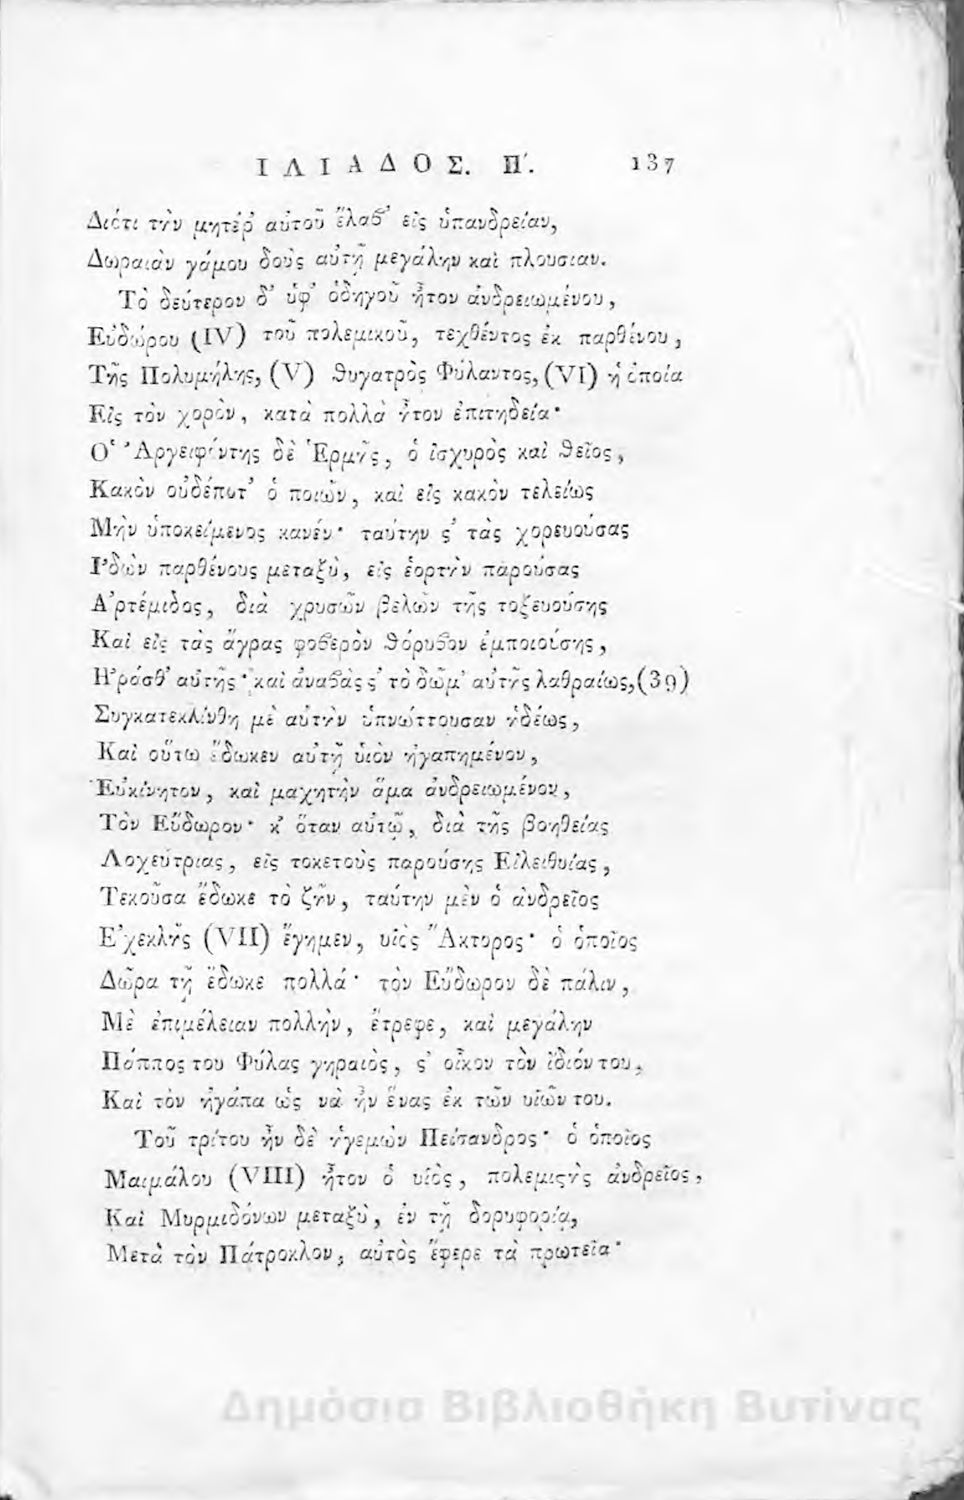 ΙΛΙΑΔΟΣ. Π΄. 137
Διότι τὴν μητέρ' αὐτοῦ ἔλαβ' εἰς ὑπανδρείαν,
Δωραιὰν γάμου δοὺς αὐτῇ μεγάλην καὶ πλουσιαν.
Τὸ δεύτερον δ' ὑφ' ὁδηγοῦ ἦτον ἀνδρειωμένου,
Εὐδώρου (IV) τοῦ πολεμικοῦ, τεχθέντος ἐκ παρθένου,
Τῆς Πολυμήλης, (V) ϑυγατρὸς Φύλαντος, (VI) ἡ ὁποία
Εἰς τὸν χορὸν, κατὰ πολλὰ ἦτον ἐπιτηδεία·
Ο῾ Ἀργειφόντης δὲ Ἑρμῆς, ὁ ἰσχυρὸς καὶ ϑεῖος,
Κακὸν οὐδέπωτ' ὁ ποιῶν, καὶ εἰς κακὸν τελείως
Μὴν ὑποκείμενος κανέν· ταύτην ς' τὰς χορευούσας
Ι᾿δὼν παρθένους μεταξὺ, εἰς ἑορτὴν παρούσας
Α᾿ρτέμιδος, διὰ χρυσῶν βελῶν τῆς τοξευούσης
Καὶ εἰς τὰς ἄγρας φοβερὸν ϑόρυβον ἐμποιούσης,
Η᾿ράσθ' αὐτῆς· καὶ ἀναβὰς ς' τὸ δῶμ' αὐτῆς λαθραίως,(39)
Συγκατεκλίνθη μὲ αὐτὴν ὑπνώττουσαν ἡδέως,
Καὶ οὕτω ἔδωκεν αὐτῇ ὑιὸν ἠγαπημένον,
Εὐκίνητον, καὶ μαχητὴν ἅμα ἀνδρειωμένον,
Τὸν Εὔδωρον· κ' ὅταν αὐτῷ, διὰ τῆς βοηθείας
Λοχεύτριας, εἰς τοκετοὺς παρούσης Εἰλειθυίας,
Τεκοῦσα ἔδωκε τὸ ζῆν, ταύτην μὲν ὁ ἀνδρεῖος
Ε᾿χεκλῆς (VII) ἔγημεν, υἱὸς Ἄκτορος· ὁ ὁποῖος
Δῶρα τῇ ἔδωκε πολλά· τὸν Εὔδωρον δὲ πάλιν,
Μὲ ἐπιμέλειαν πολλὴν, ἔτρεφε, καὶ μεγάλην
Πάππος του Φύλας γηραιὸς, ς' οἶκον τὸν ἴδιόν του,
Καὶ τὸν ἠγάπα ὡς νὰ ἦν ἕνας ἐκ τῶν υἱῶν του.
Τοῦ τρίτου ἦν δὲ ἡγεμὼν Πείσανδρος· ὁ ὁποῖος
Μαιμάλου (VIII) ἦτον ὁ υἱὸς, πολεμιςὴς ἀνδρεῖος,
Καὶ Μυρμιδόνων μεταξὺ, ἐν τῇ δορυφορίᾳ,
Μετὰ τὸν Πάτροκλον, αὐτὸς ἔφερε τὰ πρωτεῖα·
Δημόσια Βιβλιοθήκη Βυτίνας